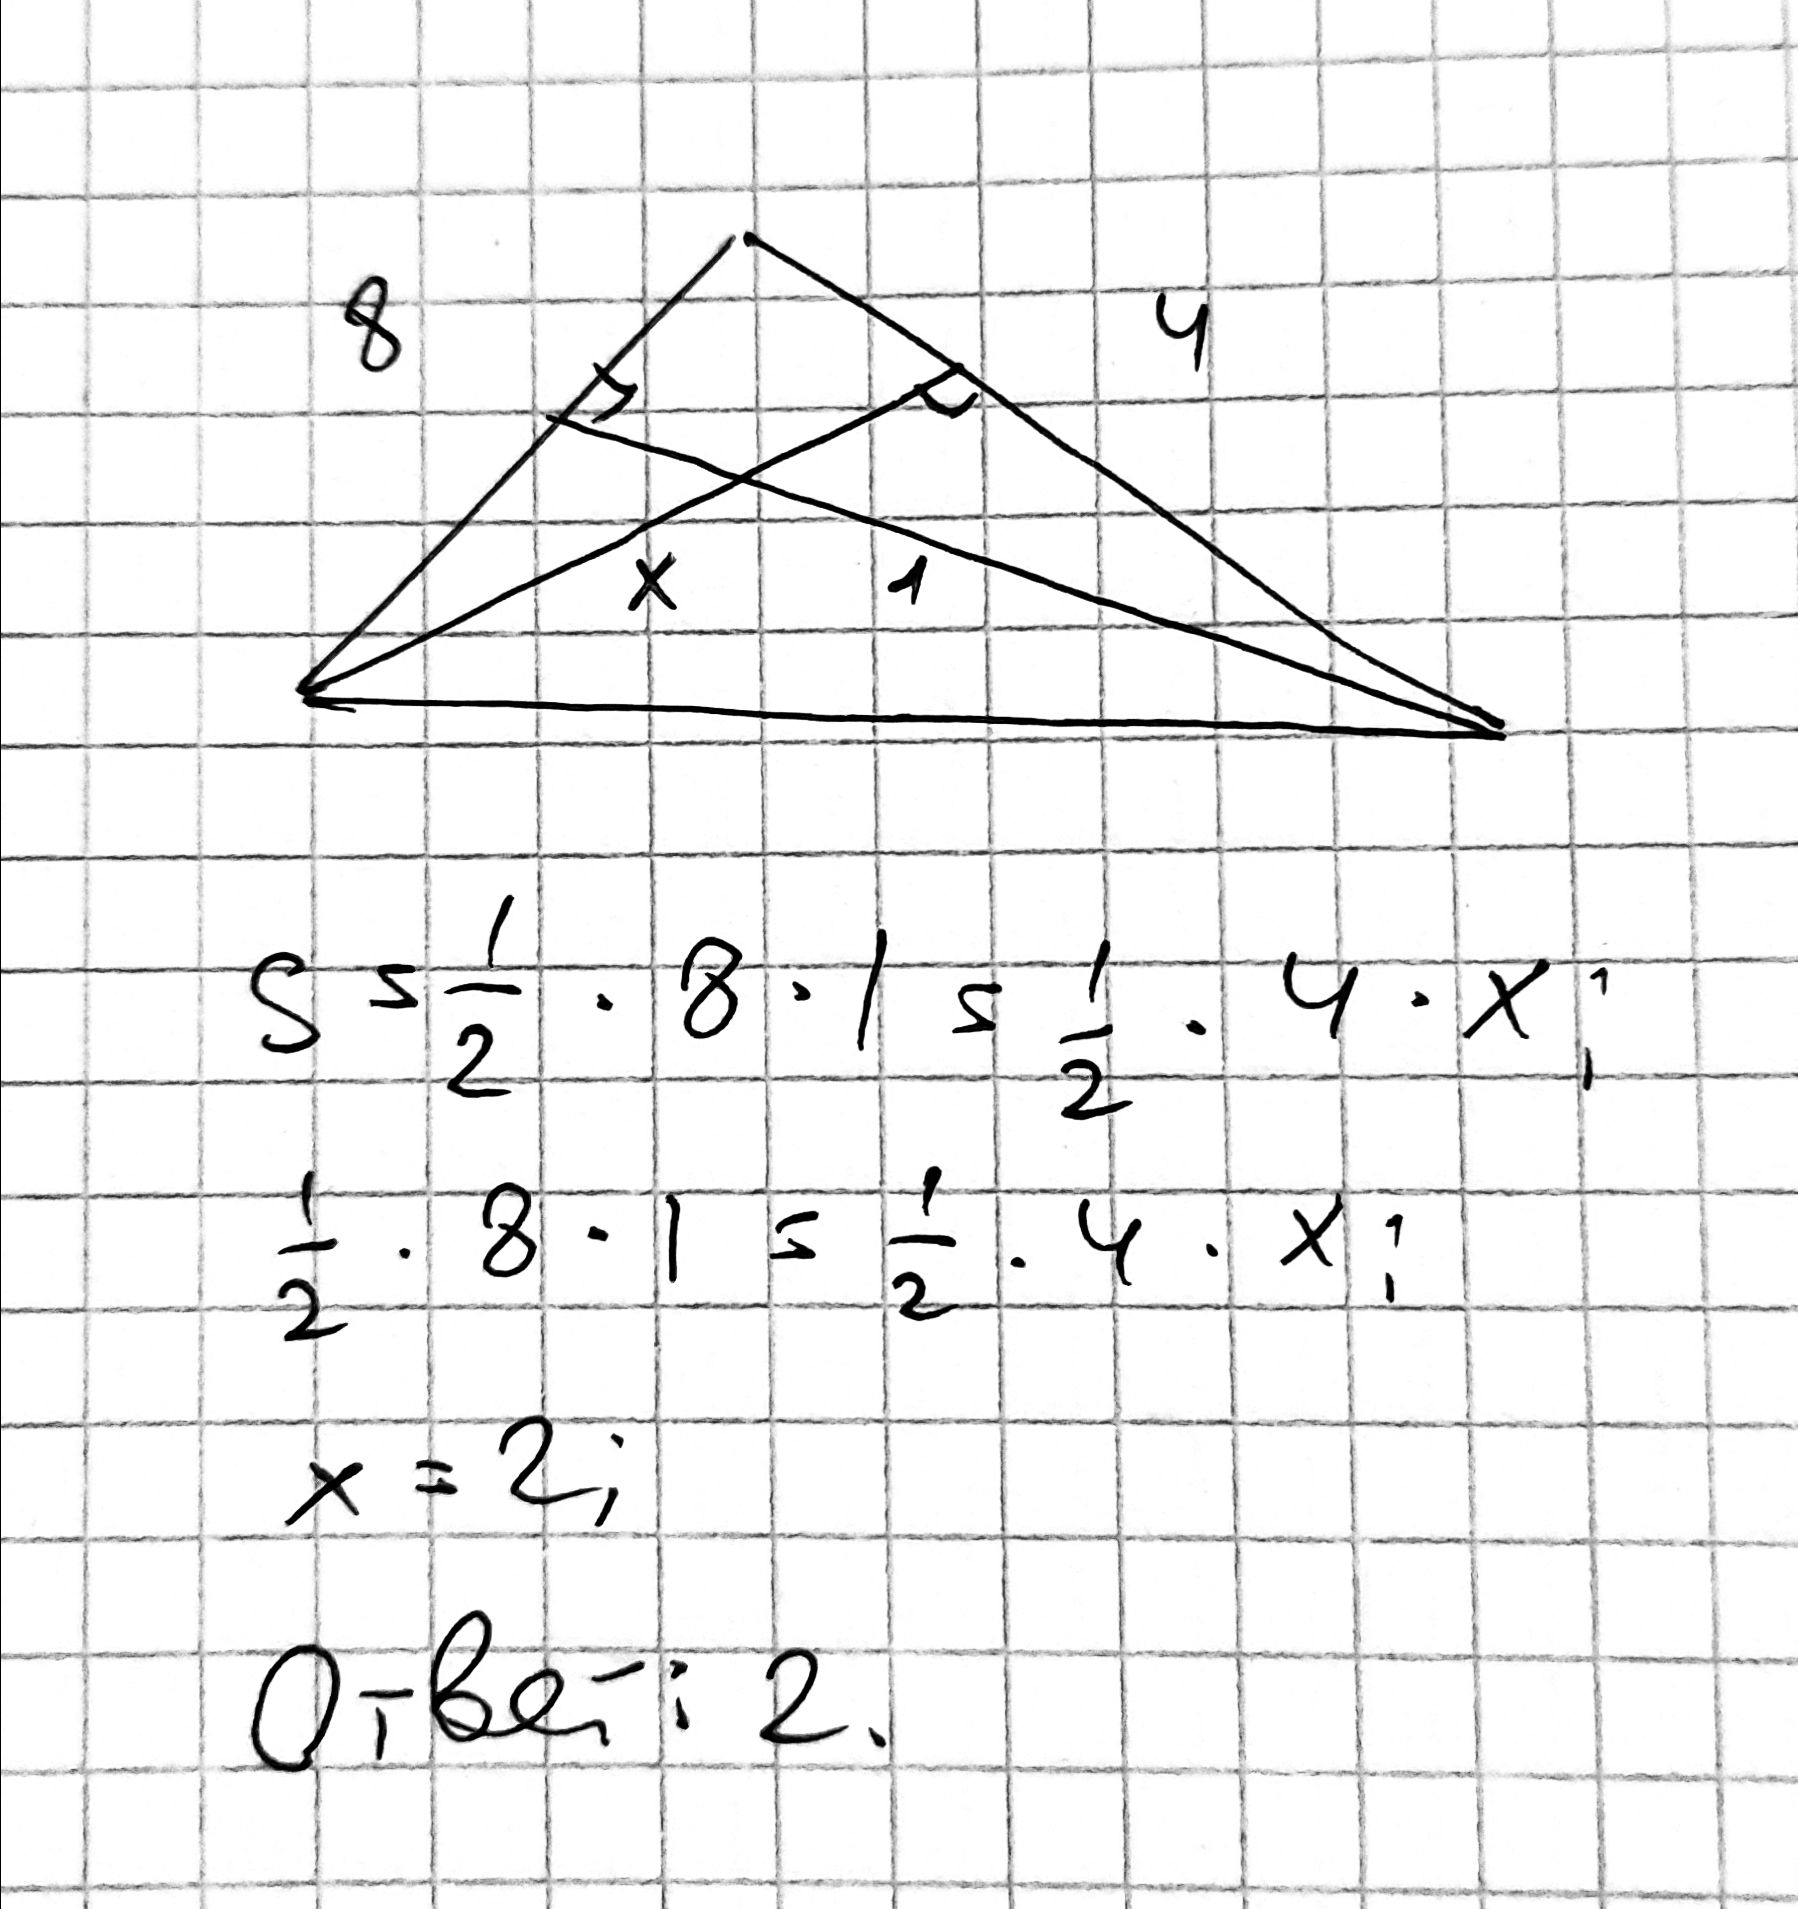 8 4
x 1
S = 1/2 · 8 · 1 = 1/2 · 4 · x;
1/2 · 8 · 1 = 1/2 · 4 · x;
x = 2;
Ответ: 2.